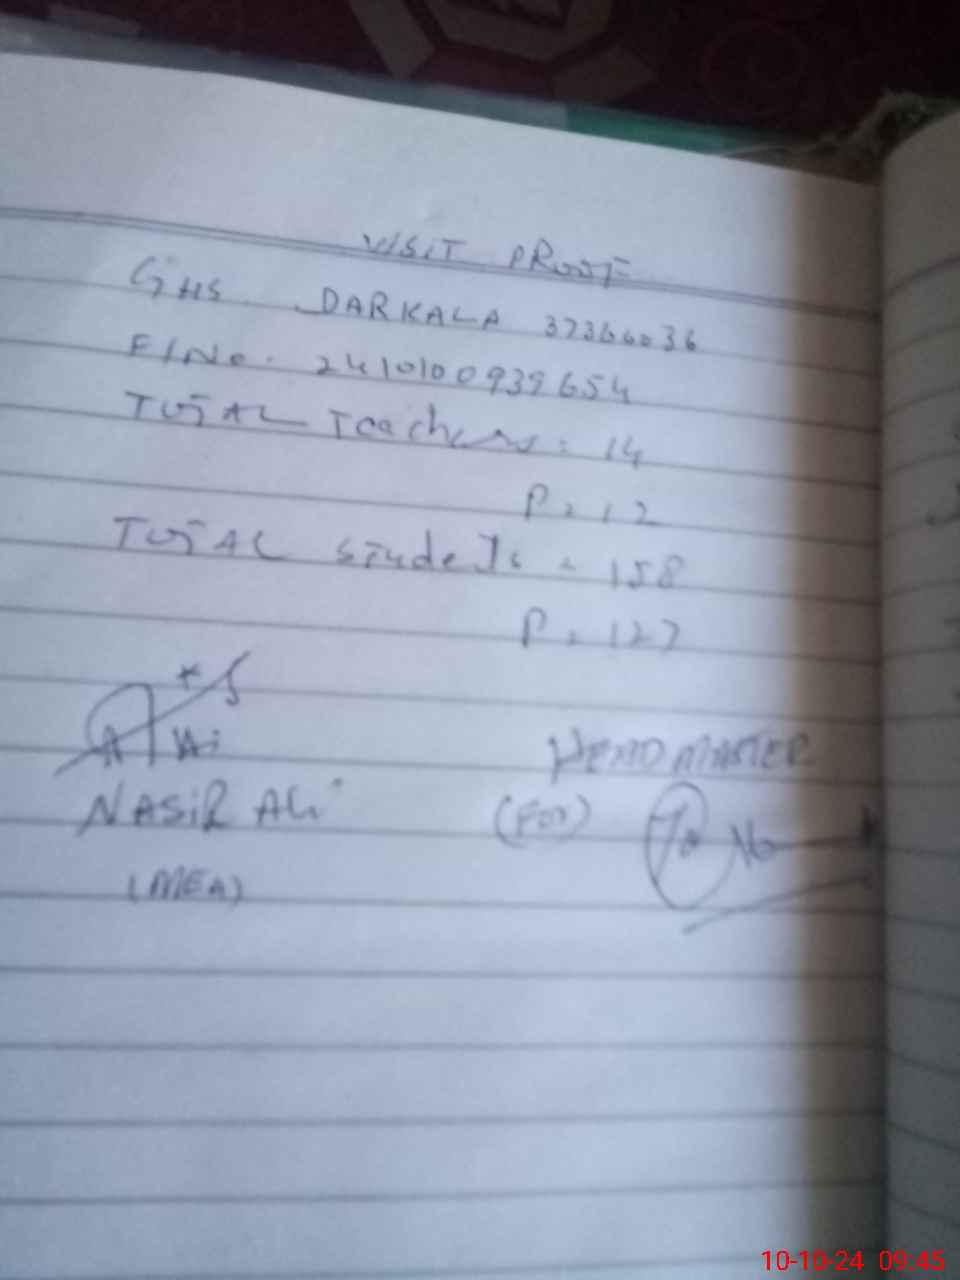 VISIT PROOF
GHS DARKALA 37366036
F/No. 2410100939654
TOTAL Teachers: 14
P = 12
TOTAL students = 158
P = 127
NASIR Ali HEAD MASTER
(MEA) (For)
10-10-24 09:45